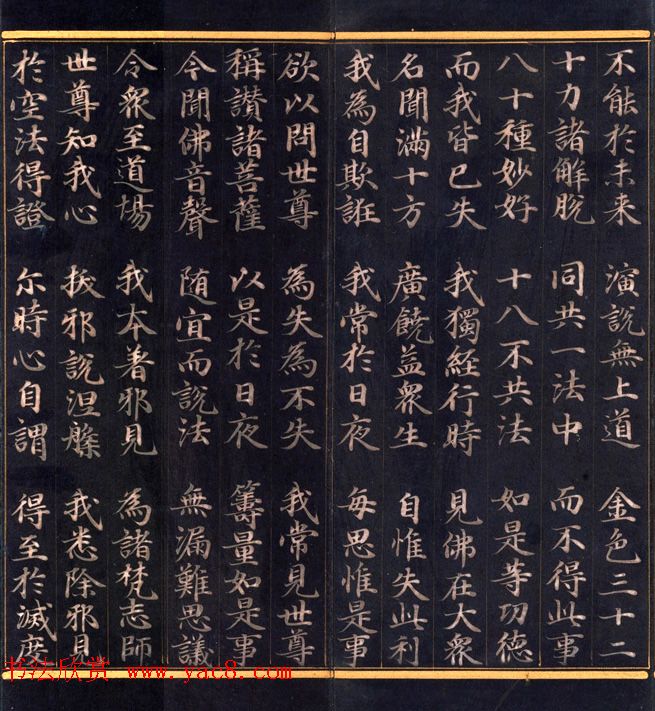 不能於未来 演說無上道 金色三十二
十力諸解脫 同共一法中 而不得此事
八十種妙好 十八不共法 如是等功德
而我皆已失 我獨經行時 見佛在大衆
名聞滿十方 廣饒益衆生 自惟失此利
我為自欺誑 我常於日夜 每思惟是事
欲以問世尊 為失為不失 我常見世尊
稱讚諸菩薩 以是於日夜 籌量如是事
今聞佛音聲 随宜而說法 無漏難思議
令衆至道場 我本著邪見 為諸梵志師
世尊知我心 拔邪說涅槃 我悉除邪見
於空法得證 尓時心自謂 得至於滅度
书法欣赏 www.yac8.com